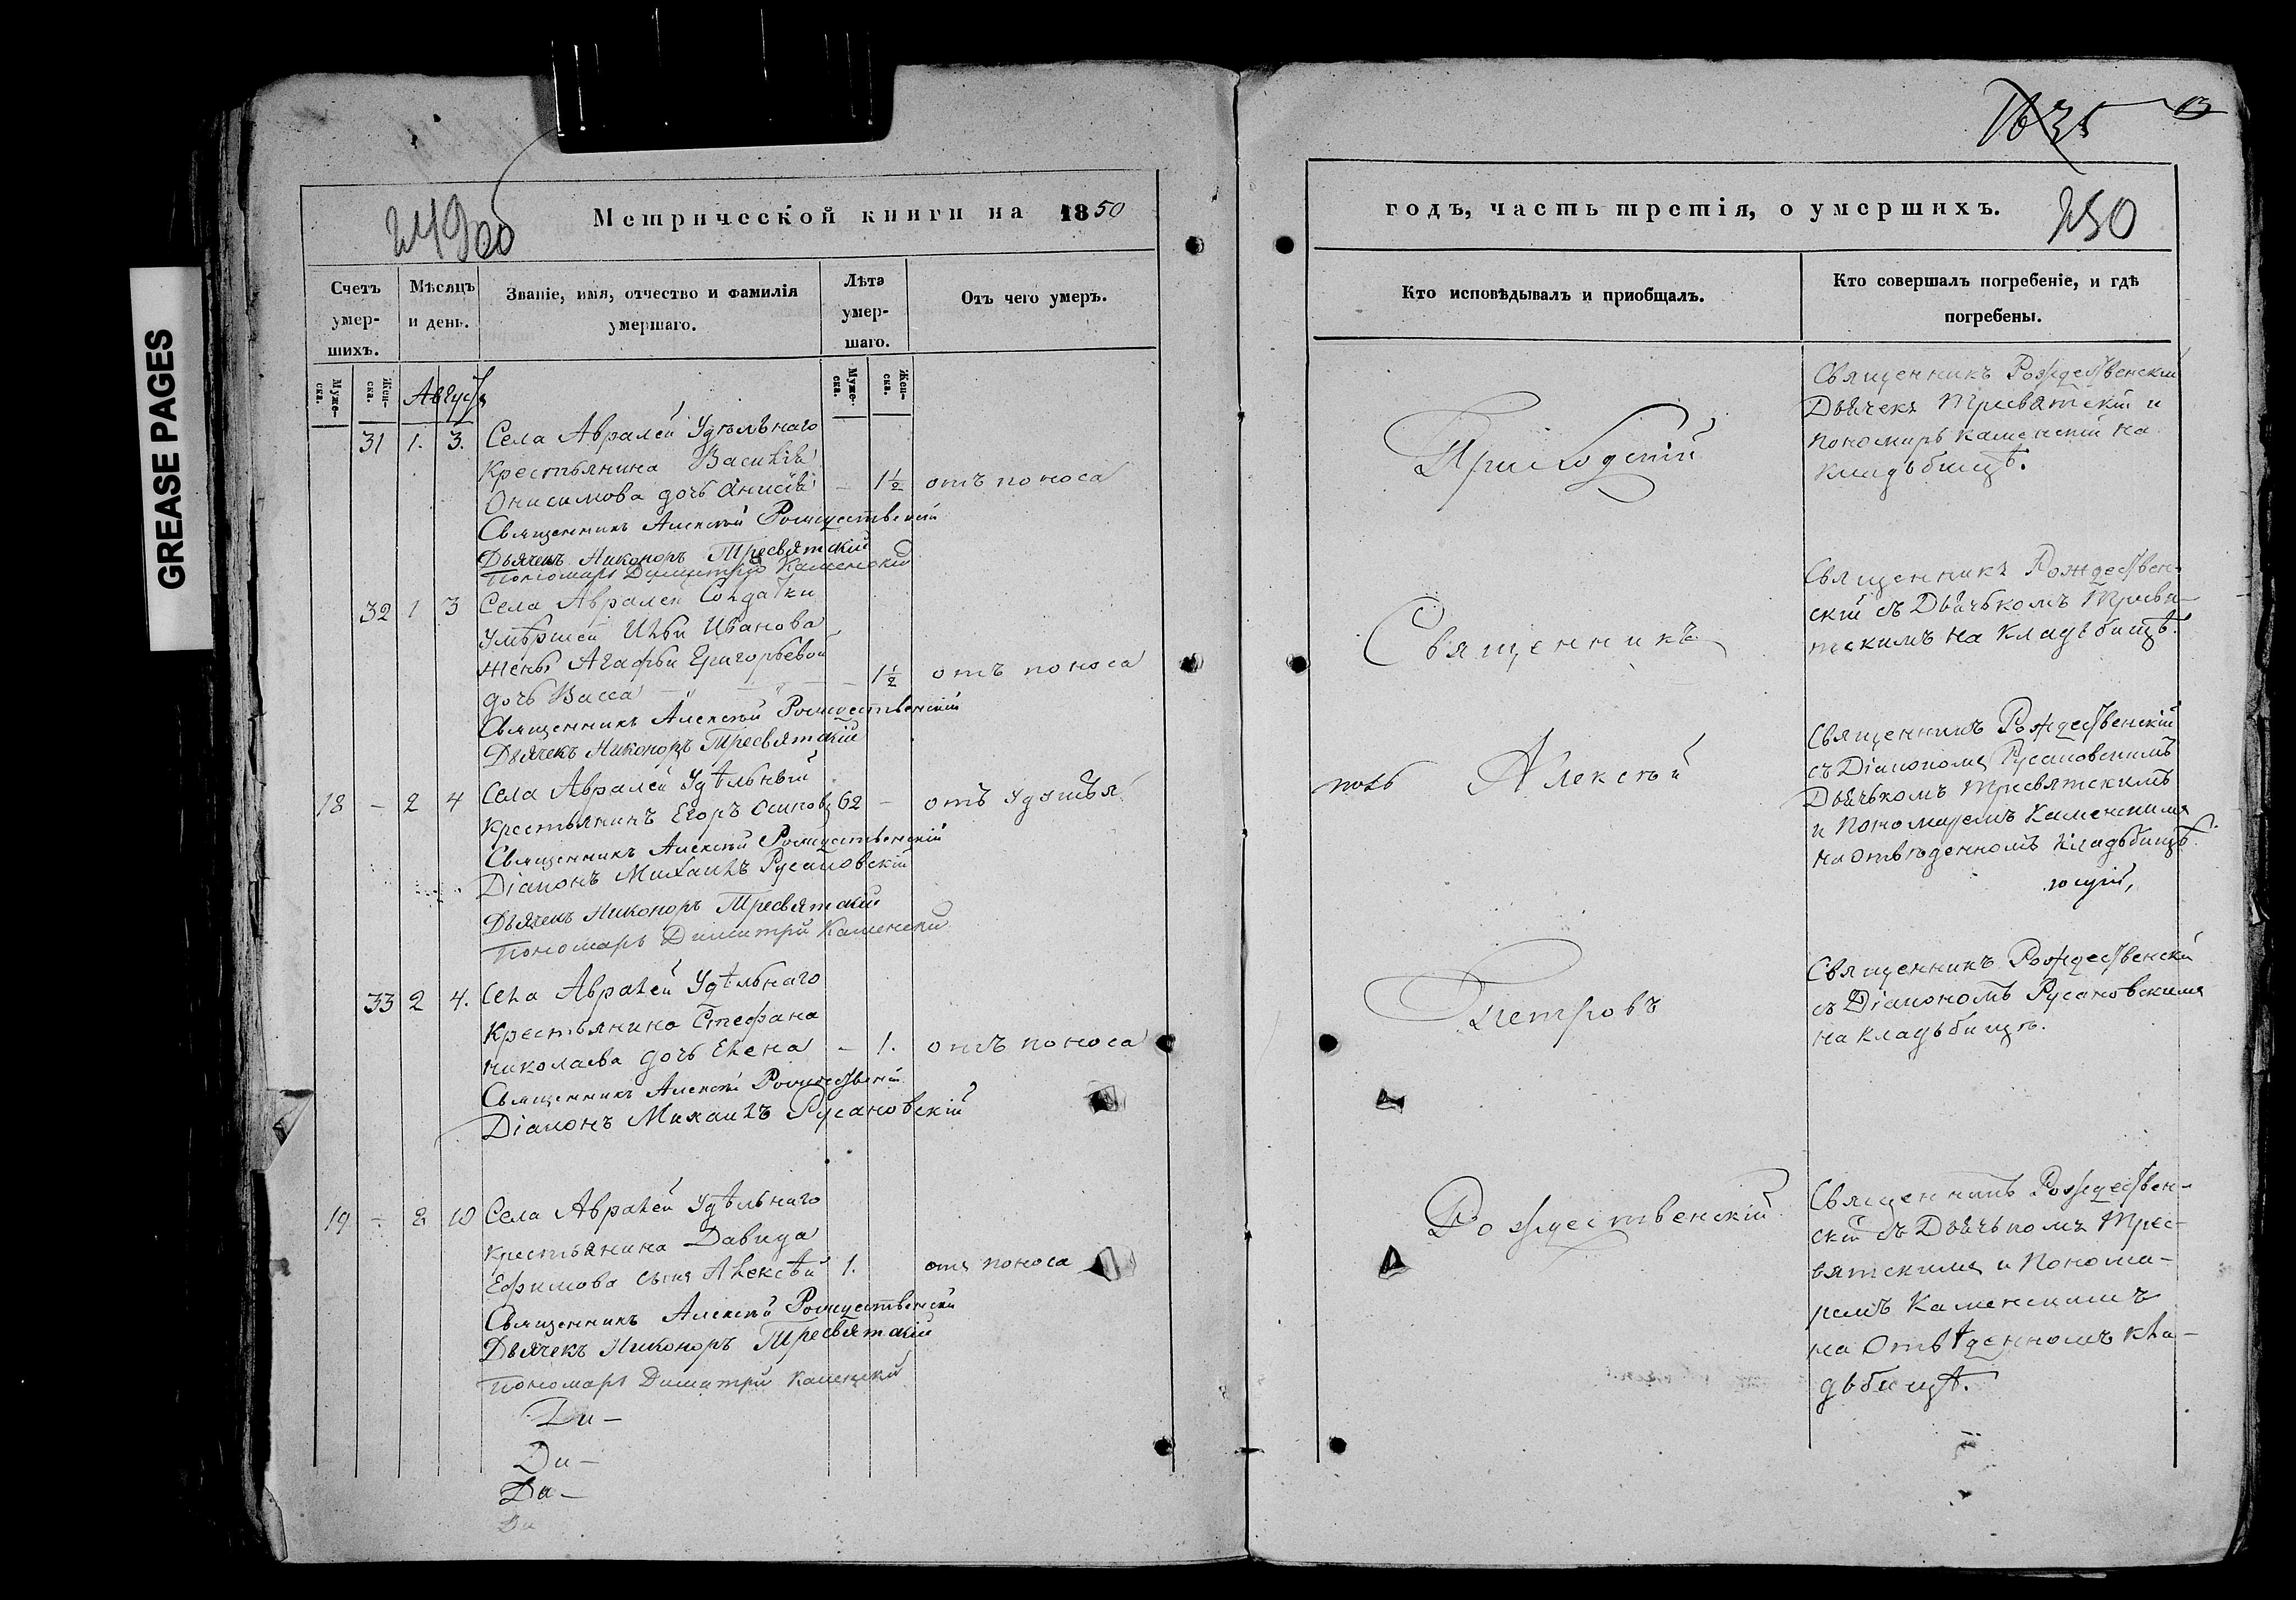 GREASE PAGES
249 об
Метрической книги на 1850
Счетъ умер-шихъ.
Мѣсяцъ и день.
Званіе, имя, отчество и фамилія умершаго.
Лѣта умер-шаго.
Отъ чего умеръ.
Муже-ска.
Жен-ска.
Муже-ска.
Жен-ска.
Августъ
31 1. 3. Села Авралей Удѣльнаго
Крестьянина Василія
Онисимова дочь Анисія — 1½ отъ поноса
Священникъ Алексѣй Рождественскій
Дьячекъ Никоноръ Тресвятскій
Пономарь Димитрій Каменскій
32 1 3 Села Авралей Солдатки
умершей Ильи Иванова
жены Агафьи Григорьевой
дочь Васса — 1½ отъ поноса
Священникъ Алексѣй Рождественскій
Дьячекъ Никоноръ Тресвятскій
18 — 2 4 Села Авралей Удѣльный
Крестьянинъ Егоръ Осиповъ 62 — отъ удушья
Священникъ Алексѣй Рождественскій
Діаконъ Михаилъ Русановскій
Дьячекъ Никоноръ Тресвятскій
Пономарь Димитрій Каменскій
33 2 4. Села Авралей Удѣльнаго
Крестьянина Стефана
Николаева дочь Елена — 1. отъ поноса
Священникъ Алексѣй Рождественскій
Діаконъ Михаилъ Русановскій
19 — 8 10 Села Авралей Удѣльнаго
Крестьянина Давида
Ефимова сынъ Алексѣй 1. отъ поноса
Священникъ Алексѣй Рождественскій
Дьячекъ Никоноръ Тресвятскій
Пономарь Димитрій Каменскій
годъ, часть третія, о умершихъ.
250
Кто исповѣдывалъ и приобщалъ.
Кто совершалъ погребеніе, и гдѣ погребены.
Приходскій
Священникъ
Алексѣй
Петровъ
Рождественскій
Священникъ Рождественскій
Дьячекъ Тресвятскій и
Пономарь Каменскій на
кладьбищѣ.
Священникъ Рождествен-
скій съ Дьячькомъ Тресвя-
тскимъ на кладьбищѣ.
Священникъ Рождественскій
съ Діакономъ Русановскимъ
Дьячькомъ Тресвятскимъ
и Пономаремъ Каменскимъ
на отведенномъ кладьбищѣ.
Священникъ Рождественскій
съ Діакономъ Русановскимъ
на кладьбищѣ.
Священникъ Рождествен-
скій съ Дьячькомъ Трес-
вятскимъ и Понома-
ремъ Каменскимъ
на отвѣденномъ кла-
дьбищѣ.